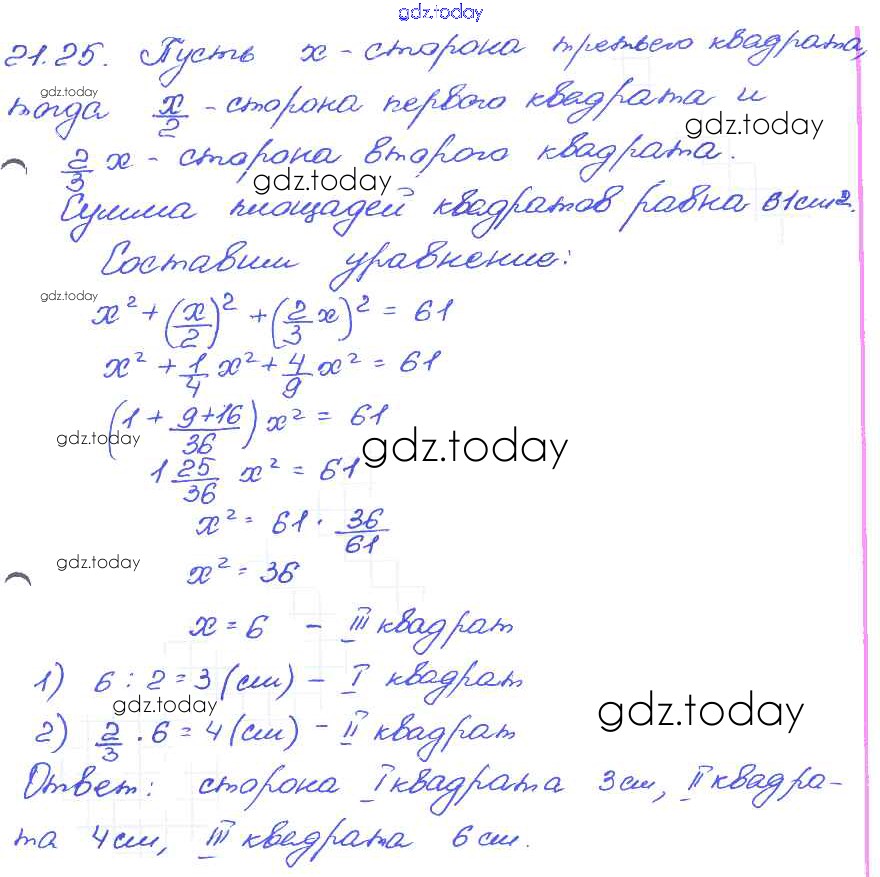 gdz.today
21.25. Пусть x - сторона третьего квадрата,
gdz.today
тогда x/2 - сторона первого квадрата и
gdz.today
2/3 x - сторона второго квадрата.
gdz.today
Сумма площадей квадратов равна 61 см².
Составим уравнение:
gdz.today
x² + (x/2)² + (2/3 x)² = 61
x² + 1/4 x² + 4/9 x² = 61
(1 + 9+16/36) x² = 61
gdz.today
gdz.today
1 25/36 x² = 61
x² = 61 · 36/61
gdz.today
x² = 36
x = 6 - III квадрат
1) 6 : 2 = 3 (см) - I квадрат
gdz.today
gdz.today
2) 2/3 · 6 = 4 (см) - II квадрат
Ответ: сторона I квадрата 3 см, II квадра-
та 4 см, III квадрата 6 см.